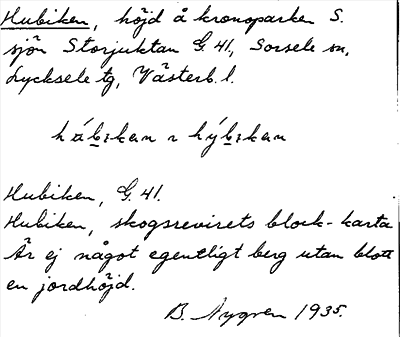 Hubiken, höjd å kronoparken S.
sjön Storjuktan G. 41, Sorsele sn,
Lycksele tg, Västerb. l.
Hubiken, G. 41.
Hubiken, skogsrevirets block-karta
Är ej något egentligt berg utan blott
en jordhöjd.
B. Nygren 1935.